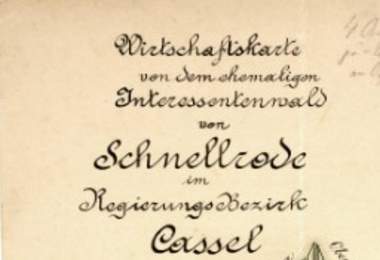 Wirtschaftskarte
von dem ehemaligen
Interessentenwald
von
Schnellrode
im
RegierungsBezirk
Cassel